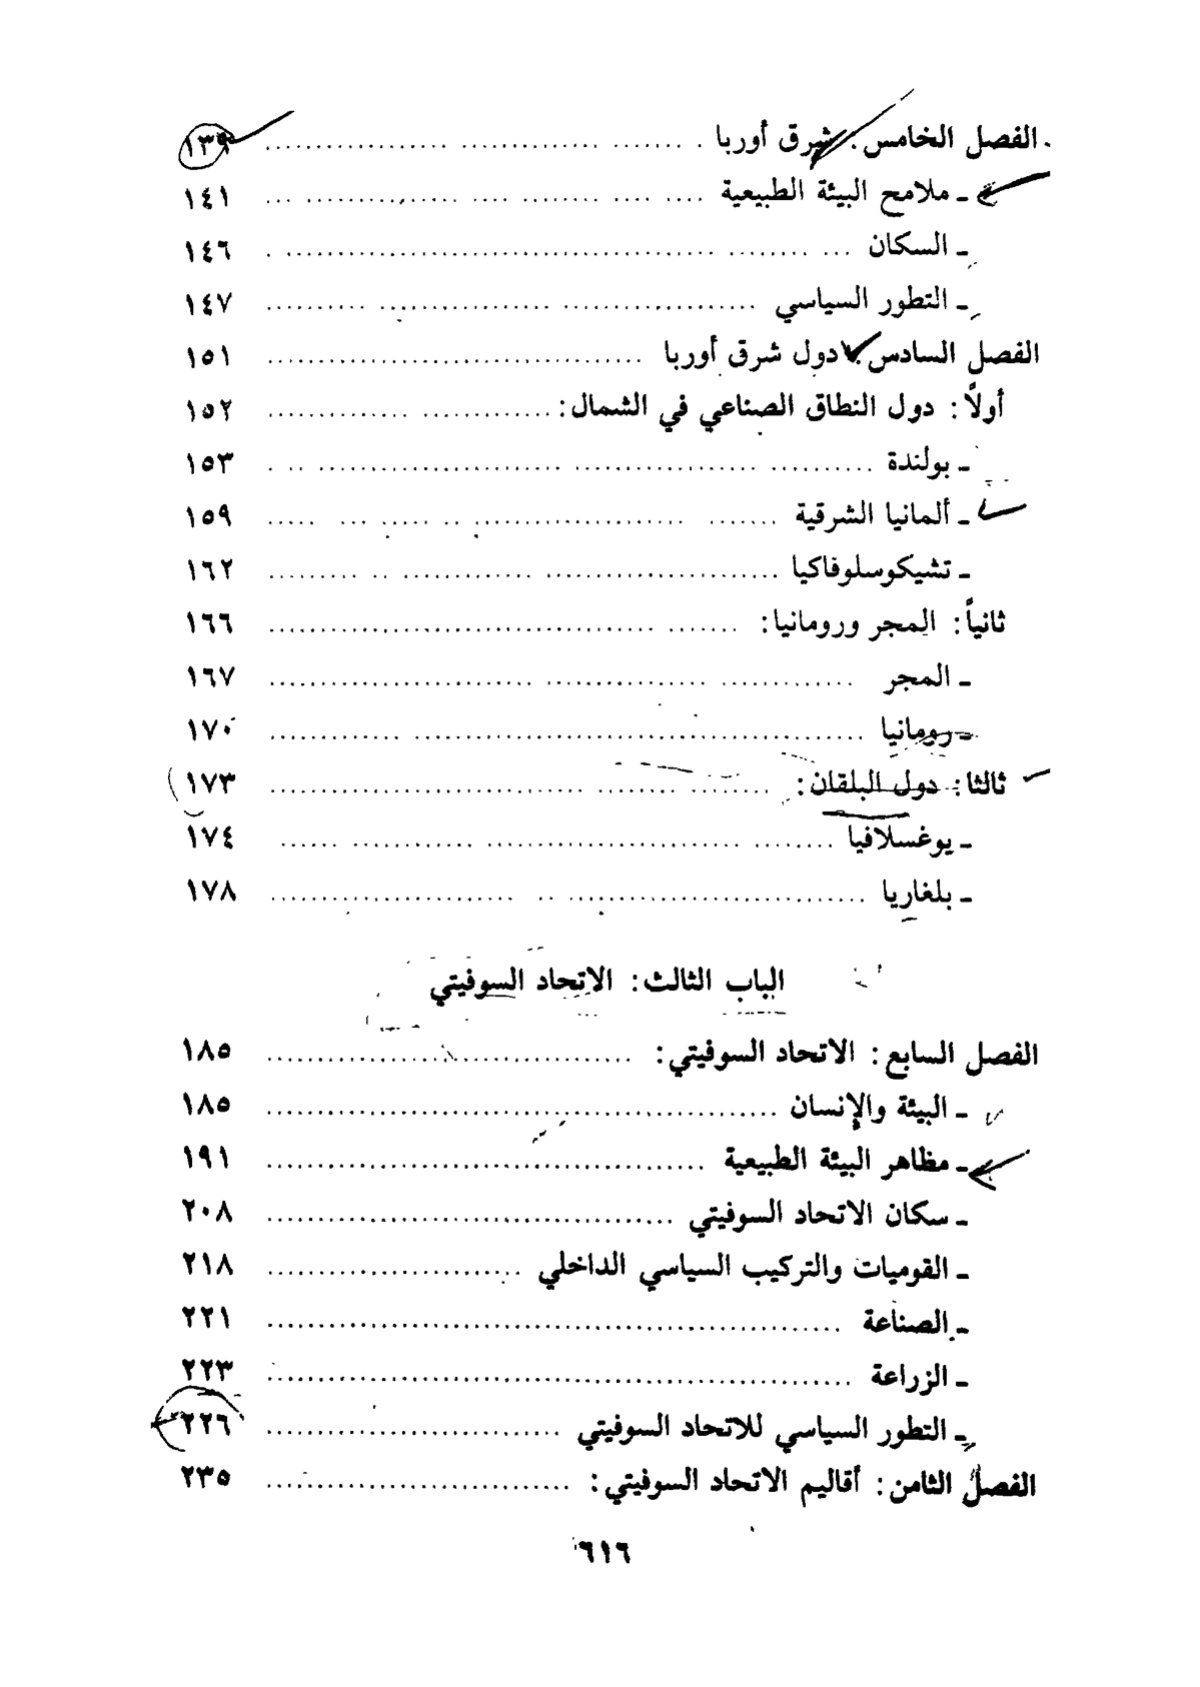 الفصل الخامس: شرق أوربا ........ ١٣٩
ـ ملامح البيئة الطبيعية ........ ١٤١
ـ السكان ........ ١٤٦
ـ التطور السياسي ........ ١٤٧
الفصل السادس: دول شرق أوربا ........ ١٥١
أولاً: دول النطاق الصناعي في الشمال: ........ ١٥٢
ـ بولندة ........ ١٥٣
ـ ألمانيا الشرقية ........ ١٥٩
ـ تشيكوسلوفاكيا ........ ١٦٢
ثانياً: المجر ورومانيا: ........ ١٦٦
ـ المجر ........ ١٦٧
ـ رومانيا ........ ١٧٠
ثالثا: دول البلقان: ........ ١٧٣
ـ يوغسلافيا ........ ١٧٤
ـ بلغاريا ........ ١٧٨
الباب الثالث: الاتحاد السوفيتي
الفصل السابع: الاتحاد السوفيتي: ........ ١٨٥
ـ البيئة والإنسان ........ ١٨٥
ـ مظاهر البيئة الطبيعية ........ ١٩١
ـ سكان الاتحاد السوفيتي ........ ٢٠٨
ـ القوميات والتركيب السياسي الداخلي ........ ٢١٨
ـ الصناعة ........ ٢٢١
ـ الزراعة ........ ٢٢٣
ـ التطور السياسي للاتحاد السوفيتي ........ ٢٢٦
الفصل الثامن: أقاليم الاتحاد السوفيتي: ........ ٢٣٥
٦١٦